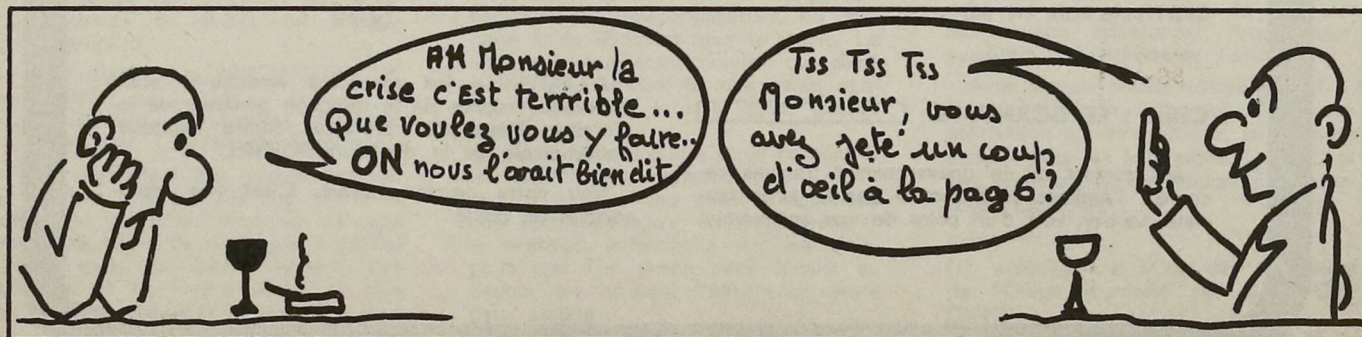 AH Monsieur la
crise c'Est terrrible...
Que voulez vous y faire..
ON nous l'avait bien dit
Tss Tss Tss
Monsieur, vous
avez jeté un coup
d'oeil à la pag 6?